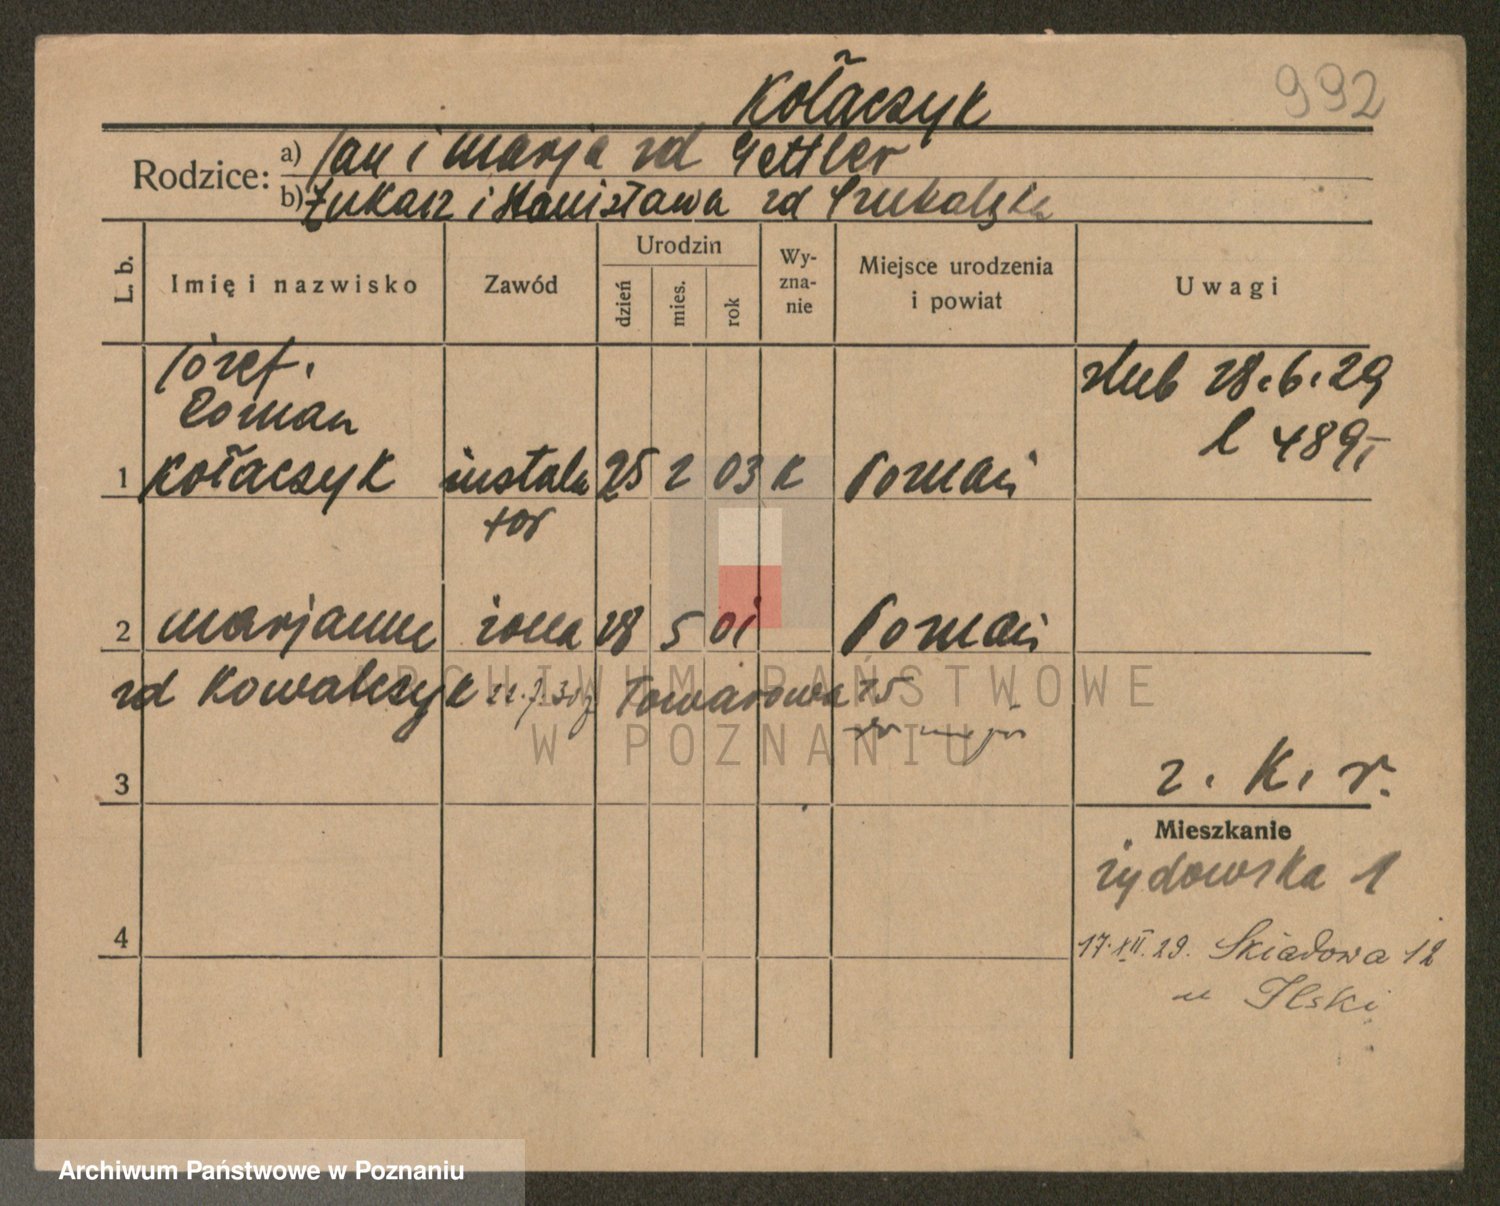 992
Kołaczyk
Rodzice: a) Jan i Marja zd Gettler
b) Łukasz i Stanisława zd
L. b. Imię i nazwisko Zawód Urodzin dzień mies. rok Wy-zna-nie Miejsce urodzenia i powiat Uwagi
Józef.
Roman
1 Kołaczyk instala 25 2 03 k Poznań
tor
ślub 28.6.29
l 489
2 Marjanna żona 28 5 01 Poznań
zd Kowalczyk Towarowa
z. K. r.
3
Mieszkanie
żydowska 1
4
17.XII.29. Składowa 12
u Ilski
ARCHIWUM PAŃSTWOWE
W POZNANIU
Archiwum Państwowe w Poznaniu